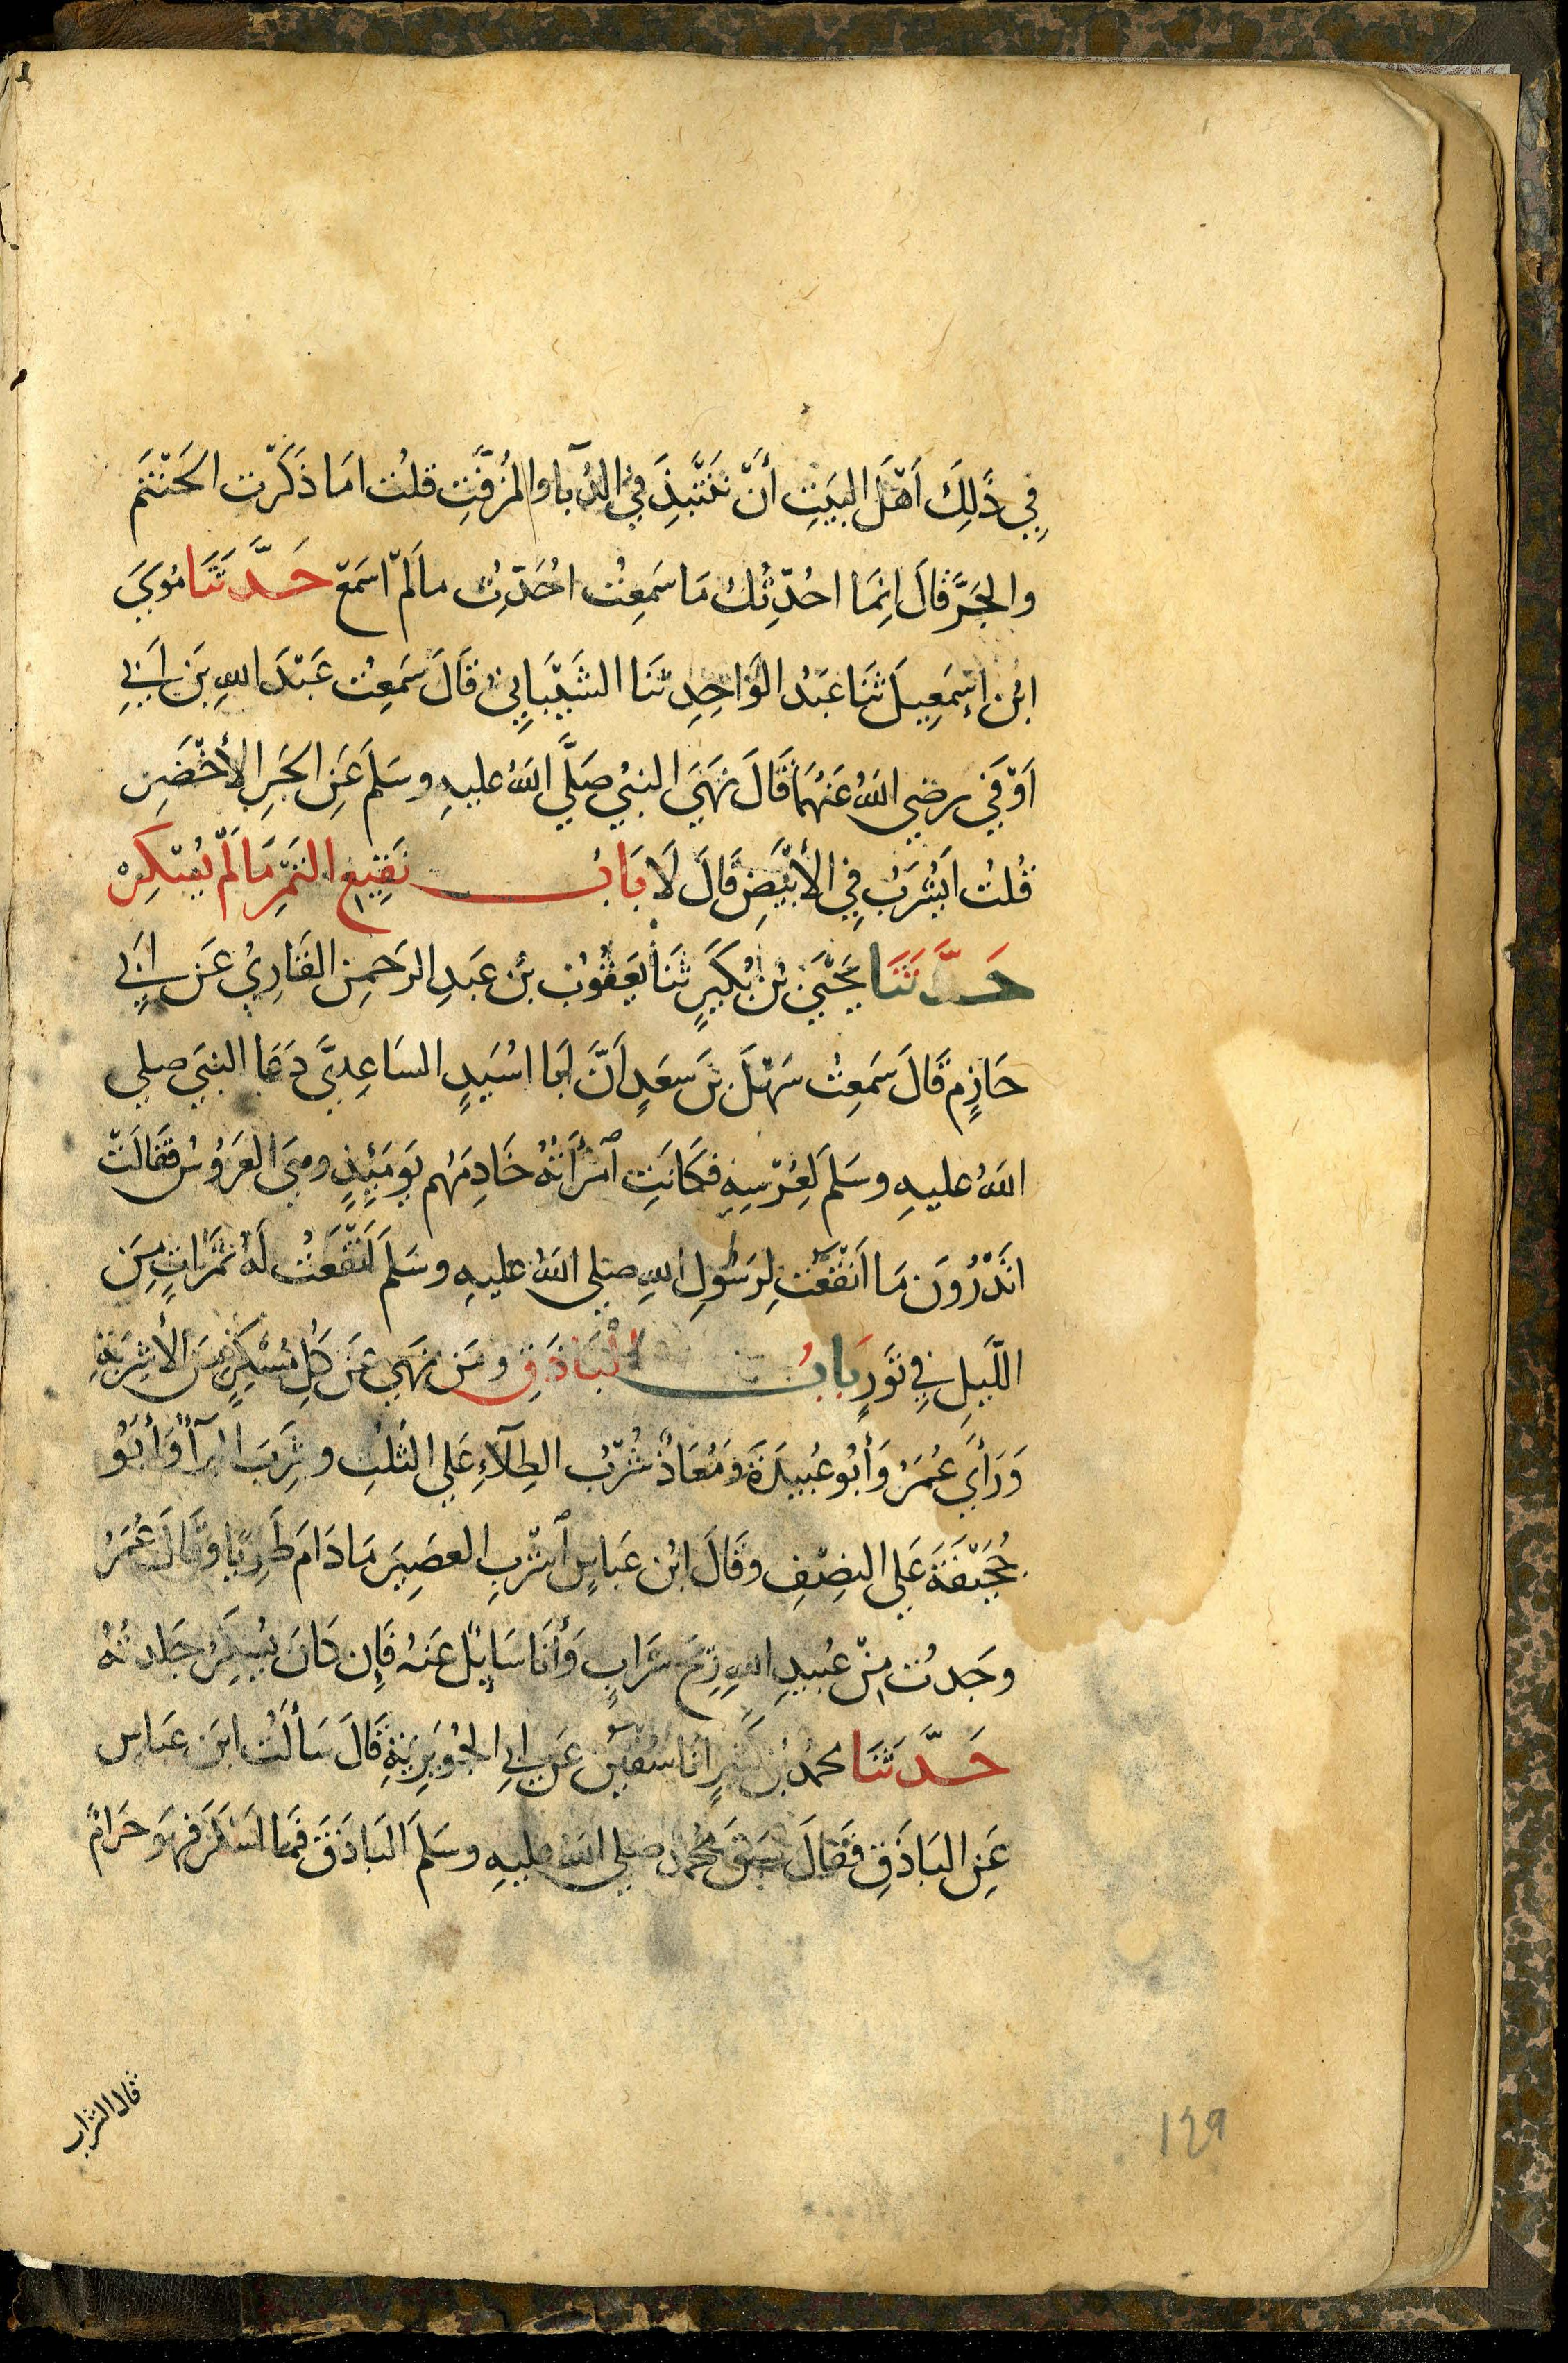 فِي ذَلِكَ أَهْلَ البَيتِ أَنْ نَنْتَبِذَ فِي الدُّبآا والمُزَفَّتِ قلتُ امَا ذَكَرْت الحَنْتَم
والجَرَّ قالَ انِمَا احُدّثِكُ مَا سَمِعتُ احُدَّثِ ما لَمْ اسْمَعْ حَدَّثَنَا مُوسَى
ابُن إسمَعِيلَ ثنَا عَبدُ الوَاحِدِ ثنَا الشَيْبَانِيُ قَالَ سَمِعتُ عَبْدَ اللهِ بنَ اَبِي
اَوْفَي رضي اللهُ عَنهُمَا قَالَ نَهَي النبيُ صَلَّي اللهُ عليهِ وسَلمَ عَنِ الجَرِ الأخْضَرِ
قُلتُ اَيُشرَبُ فِي الأبْيَضِ قَالَ لَا بَابُ نَقِيعِ التَمْرِ مَا لَمْ يُسْكِرْ
حَدَّثنَا يَحْيَي بنُ بُكَيرٍ ثنَا يَعقُوبُ بنُ عَبدِ الرَحمنِ القَارِيُ عَن اَبِي
حَازِمٍ قَالَ سَمِعتُ سَهْلَ بنَ سعَدٍ اَنَّ اَبا اسُيَدٍ السَاعِديَّ دَعَا النبيَ صلي
اللهُ عليهِ وسَلمَ لِعُرْسِهِ فكَانَتِ ٱمْرأَتُهُ خَادِمَهُم يَومَئِذٍ وهيَ العَرُوسُ فقَالَتْ
اتَدْرُونَ مَا اَنْقَعْت لِرَسُولِ اللهِ صلي اللهُ عليهِ وسَلمَ اَنْقَعْتُ لَهُ تَمَرَاتٍ مِنَ
اللَّيلِ فِي تَورٍ بَابُ البَاذَقِ ومَن نَهَي عَن كُلِ مُسْكِرٍ مِنَ الأشرِبَةِ
وَرَأي عُمَرُ وَأبُو عُبيدَةَ وَمُعَاذٌ شُرْبَ الطِلآءِ عَلي الثُلثِ وشَرِبَ البَرَآءُ وَأبُو
جُحَيْفَةَ عَلي النصْفِ وقَالَ ابُن عَباسٍ ٱشْرَبِ العصِيرَ مَا دَامَ طَرِيًا وقَالَ عُمَرُ
وجَدتُ مِنْ عُبيدِ اللهِ رِيحَ شَرَابٍ وَأنَا سَايِلٌ عَنهُ فَإِن كَانَ يُسْكِرُ جَلَدتُهُ
حَدَّثنَا محمدُ بنُ كَثيرٍ انَا سُفْيٰنُ عَن اَبِي الجُوَيرِيَةِ قَالَ سَألتُ ابنَ عَباسٍ
عَنِ البَاذَقِ فقَالَ سَبَقَ مُحَمدٌ صلي اللهُ عليهِ وسَلمَ البَاذَقَ فَما اَسْكَرَ فهوَ حَرَامٌ
قال الشراب
١٤٩